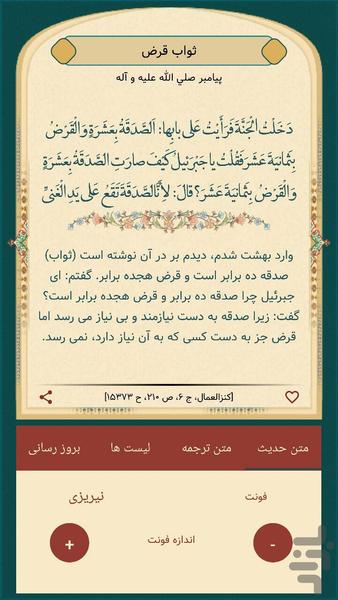 ثواب قرض
پیامبر صلي الله علیه و آله
دَخَلْتُ الْجَنَّةَ فَرَأَيْتُ عَلى بابِها: اَلصَّدَقَةُ بِعَشَرَةٍ وَالْقَرْضُ
بِثَمانِيَةَ عَشَرَ فَقُلْتُ يا جَبرَئيلُ كَيْفَ صارَتِ الصَّدَقَةُ بِعَشَرَةٍ
وَالْقَرْضُ بِثَمانِيَةَ عَشَرَ؟ قالَ: لأَِنَّ الصَّدَقَةَ تَقَعُ عَلى يَدِ الْغَنىِّ
وارد بهشت شدم، دیدم بر در آن نوشته است (ثواب)
صدقه ده برابر است و قرض هجده برابر. گفتم: ای
جبرئیل چرا صدقه ده برابر و قرض هجده برابر است؟
گفت: زیرا صدقه به دست نیازمند و بی نیاز می رسد اما
قرض جز به دست کسی که به آن نیاز دارد، نمی رسد.
[کنزالعمال، ج ۶، ص ۲۱۰، ح ۱۵۳۷۳]
متن حدیث متن ترجمه لیست ها بروز رسانی
فونت نیریزی
- اندازه فونت +
بازار